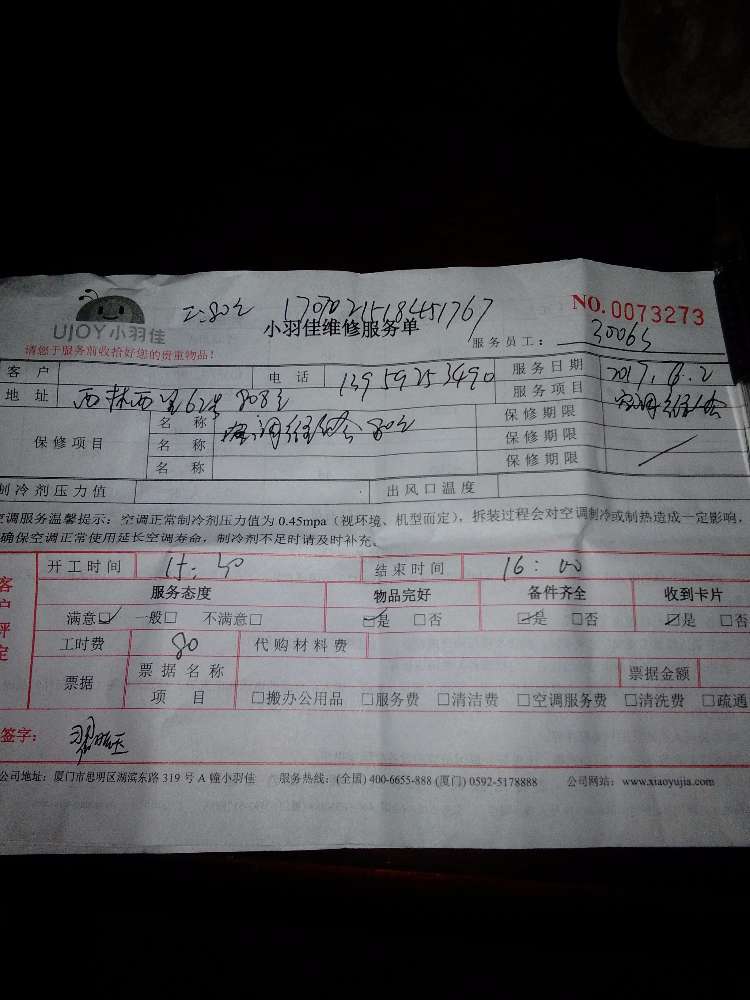 1707021518451767
NO.0073273
UJOY小羽佳
小羽佳维修服务单
服务员工: 30065
请您于服务前收拾好您的贵重物品!
客户 电话 13959253490 服务日期 2017.
地址 西林西里62号 808室 服务项目 空调维修
名称 空调维修 80元 保修期限
保修项目 名称 保修期限
名称 保修期限
制冷剂压力值 出风口温度
空调服务温馨提示:空调正常制冷剂压力值为 0.45mpa(视环境、机型而定),拆装过程会对空调制冷或制热造成一定影响,
确保空调正常使用延长空调寿命,制冷剂不足时请及时补充。
开工时间 结束时间 16:00
客户评定
服务态度 物品完好 备件齐全 收到卡片
满意☑ 一般□ 不满意□ ☑是 □否 ☑是 □否 ☑是 □否
工时费 80 代购材料费
票据 票据名称 票据金额
项目 □搬办公用品 □服务费 □清洁费 □空调服务费 □清洗费 □疏通
签字:
公司地址:厦门市思明区湖滨东路 319 号 A 幢小羽佳 服务热线:(全国) 400-6655-888 (厦门) 0592-5178888 公司网站:www.xiaoyujia.com